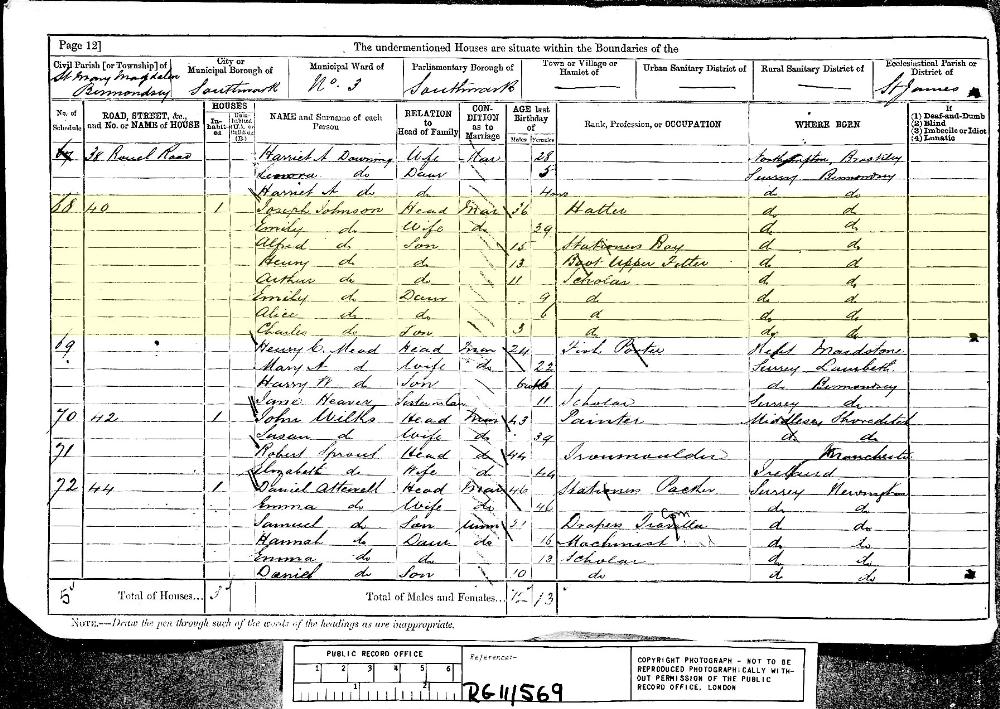 Page 12] The undermentioned Houses are situate within the Boundaries of the
Civil Parish [or Township] of City or Municipal Borough of Municipal Ward of Parliamentary Borough of Town or Village or Hamlet of Urban Sanitary District of Rural Sanitary District of Ecclesiastical Parish or District of
St Mary Magdalen Bermondsey Southwark No. 3 Southwark St James
No. of Schedule ROAD, STREET, &c., and No. or NAME of HOUSE HOUSES Inhabited NAME and Surname of each Person RELATION to Head of Family CONDITION as to Marriage AGE last Birthday of Males Females Rank, Profession, or OCCUPATION WHERE BORN If (1) Deaf-and-Dumb (2) Blind (3) Imbecile or Idiot (4) Lunatic
67 38 Rouel Road Harriet A Downing Wife Mar 28 Northampton,
Lenora do Daur 5 Surrey Bermondsey
Harriet A do do 4mos do do
68 40 1 Joseph Johnson Head Mar 36 Hatter do do
Emily do Wife do 39 do do
Alfred do Son 15 Stationers Boy do do
Henry do do 13 Boot Upper Fitter do do
Arthur do do 11 Scholar do do
Emily do Daur 9 do do do
Alice do do 6 do do do
Charles do Son 3 do do do
69 Henry C. Mead Head Mar 24 Fish Porter Kent Maidstone
Mary A do Wife do 22 Surrey Lambeth
Harry W do Son do Bermondsey
Jane Heaver Sister in Law 11 Scholar Surrey do
70 42 1 John Wilks Head Mar 43 Painter Middlesex Shoreditch
Susan do Wife do 39 do do
71 Robert Sprout Head do 44 Ironmoulder Manchester
Elizabeth do Wife do 44 Ireland
72 44 1 Daniel Attewell Head Mar 46 Stationers Packer Surrey Newington
Emma do Wife do 46 do do
Samuel do Son Unm 21 Drapers Com Traveller do do
Hannah do Daur do 16 Machinist do do
Emma do do 13 Scholar do do
Daniel do Son 10 do do do
5 Total of Houses... 3 Total of Males and Females... 12 13
NOTE.—Draw the pen through such of the words of the headings as are inappropriate.
PUBLIC RECORD OFFICE
1 2 3 4 5 6
1 2
Reference:-
RG 11/569
COPYRIGHT PHOTOGRAPH - NOT TO BE
REPRODUCED PHOTOGRAPHICALLY WITH-
OUT PERMISSION OF THE PUBLIC
RECORD OFFICE, LONDON